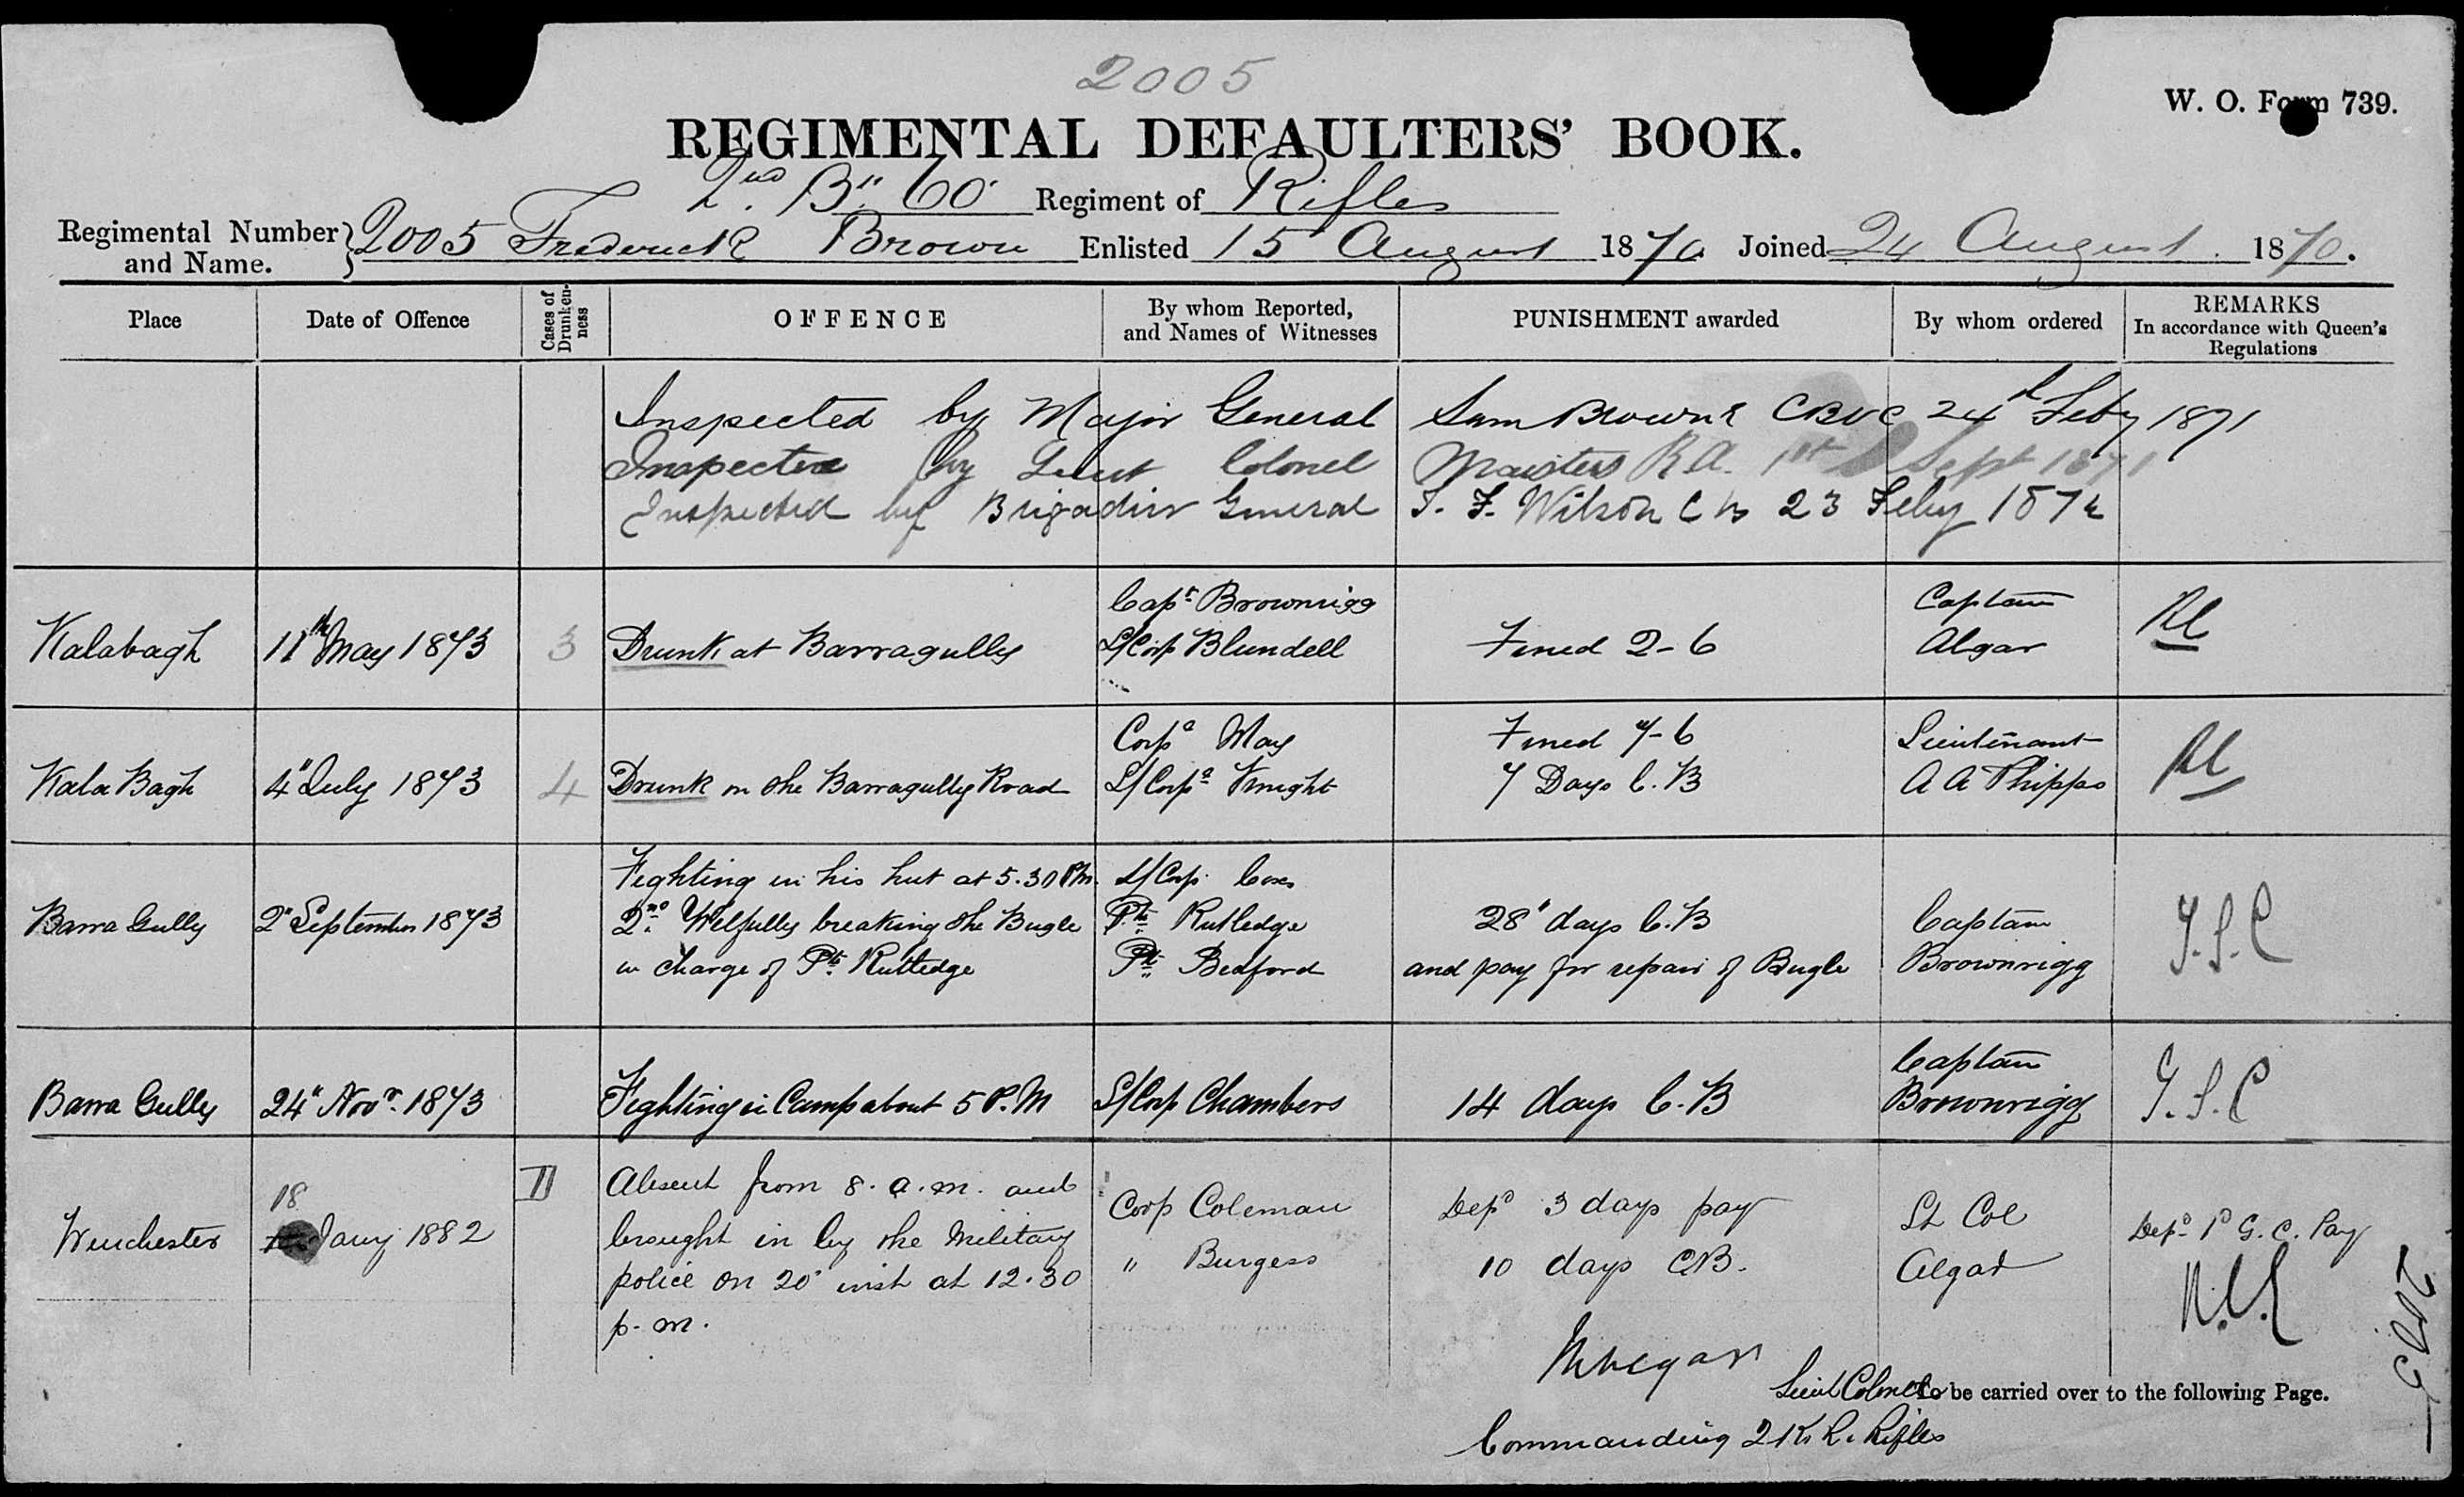 2005
W. O. Form 739.
REGIMENTAL DEFAULTERS' BOOK.
2nd Bn 60 Regiment of Rifles
Regimental Number and Name. } 2005 Frederick Brown Enlisted 15 August 1870 Joined 24 August 1870.
Place Date of Offence Cases of Drunkenness OFFENCE By whom Reported, and Names of Witnesses PUNISHMENT awarded By whom ordered REMARKS In accordance with Queen's Regulations
Inspected by Major General Sam Browne CB VC 24th Feby 1871
Inspected by Lieut Colonel R A. 1st Sept 1871
Inspected by Brigadier General T. F. Wilson CB 23 Feby 1872
Kalabagh 11th May 1873 3 Drunk at Barragully Capt Brownrigg L/Corp Blundell Fined 2-6 Captain Algar
Kala Bagh 4" July 1873 4 Drunk on the Barragully Road Corpl May L/Corpl Knight Fined 7-6 7 Days C.B Lieutenant A A Phipps
Barra Gully 2" September 1873 Fighting in his hut at 5.30 PM. 2nd Wilfully breaking the Bugle in charge of Pte Rutledge L/Corp. Cox Pte Rutledge Pte Bedford 28" days C.B and pay for repair of Bugle Captain Brownrigg
Barra Gully 24" Novr. 1873 Fighting in Camp about 5 P.M L/Corp Chambers 14 days C.B Captain Brownrigg
Winchester 18 Jany 1882 II Absent from 8. a.m. and brought in by the Military police on 20" inst at 12.30 p.m. Corp Coleman " Burgess Depd 3 days pay 10 days CB. Lt Col Algar Depd 1d G.C. Pay
Lieut Colonel
To be carried over to the following Page.
Commanding 2 K. R. Rifles